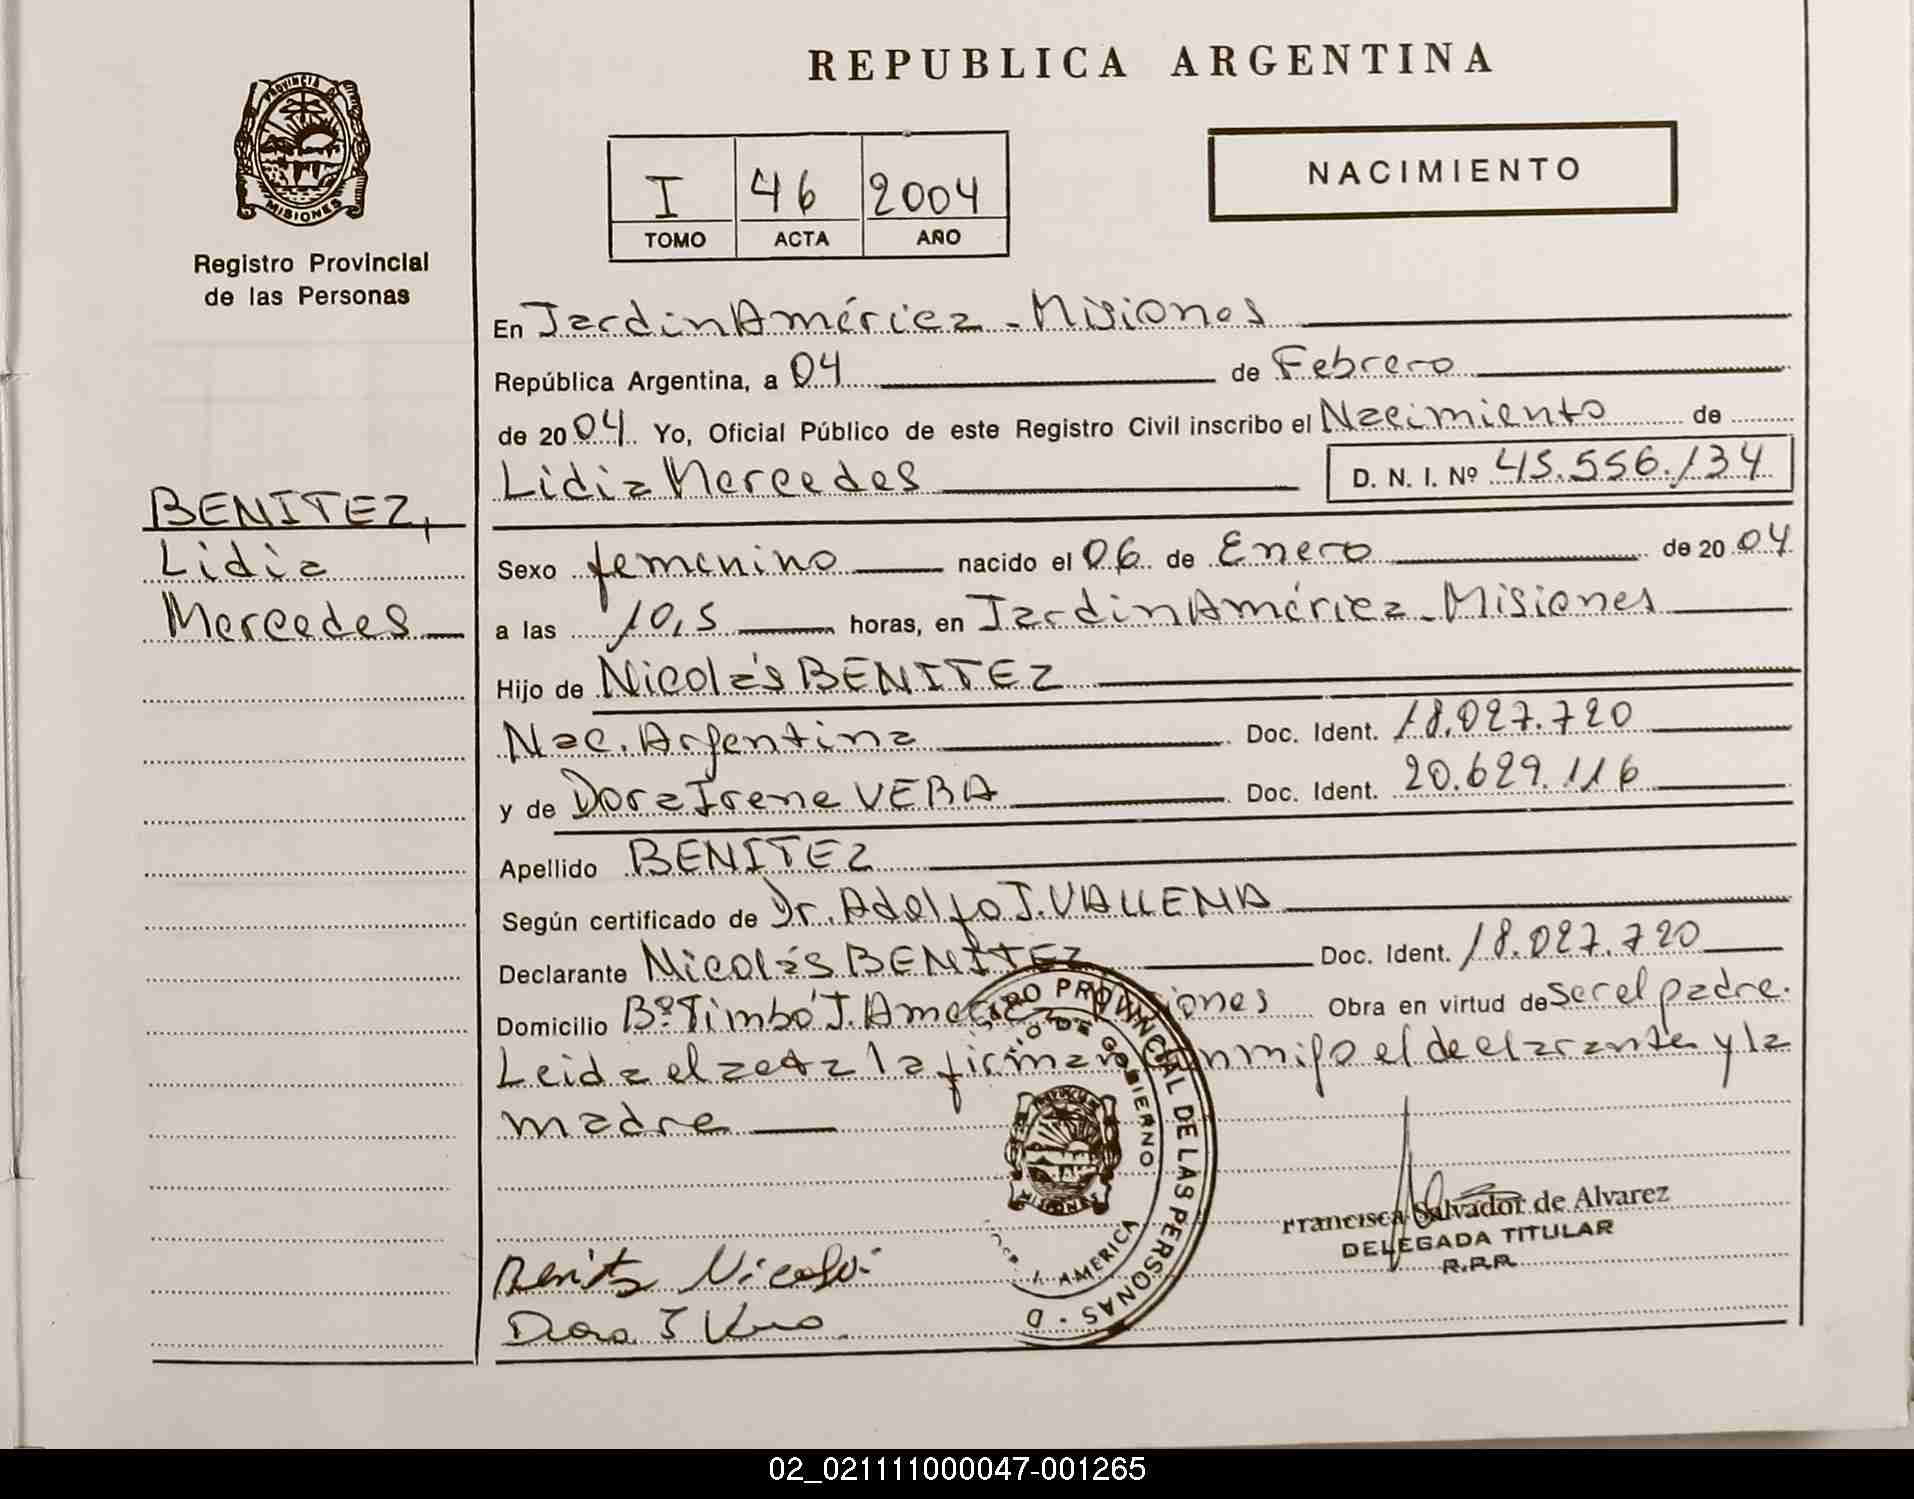 REPUBLICA ARGENTINA
PROVINCIA DE
MISIONES
Registro Provincial
de las Personas
I 46 2004
TOMO ACTA AÑO
NACIMIENTO
BENITEZ,
Lidia
Mercedes
En Jardin América - Misiones
República Argentina, a 04 de Febrero
de 2004 Yo, Oficial Público de este Registro Civil inscribo el Nacimiento de
Lidia Mercedes D. N. I. Nº 45.556.134
Sexo femenino nacido el 06 de Enero de 2004
a las 10,5 horas, en Jardin América - Misiones
Hijo de Nicolás BENITEZ
Nac. Argentina Doc. Ident. 18.027.720
y de Dora Irene VERA Doc. Ident. 20.629.116
Apellido BENITEZ
Según certificado de Dr. Adolfo J. VALLENA
Declarante Nicolás BENITEZ Doc. Ident. 18.027.720
Domicilio Bº Timbó J. America Misiones Obra en virtud de ser el padre.
Leida el acta la firman conmigo el declarante y la
madre
REGISTRO PROVINCIAL DE LAS PERSONAS - D
DE GOBIERNO
MISIONES
J. AMERICA
Francisca Salvador de Alvarez
DELEGADA TITULAR
R.P.P.
Benitez Nicolas
Dora I Vera
02_021111000047-001265